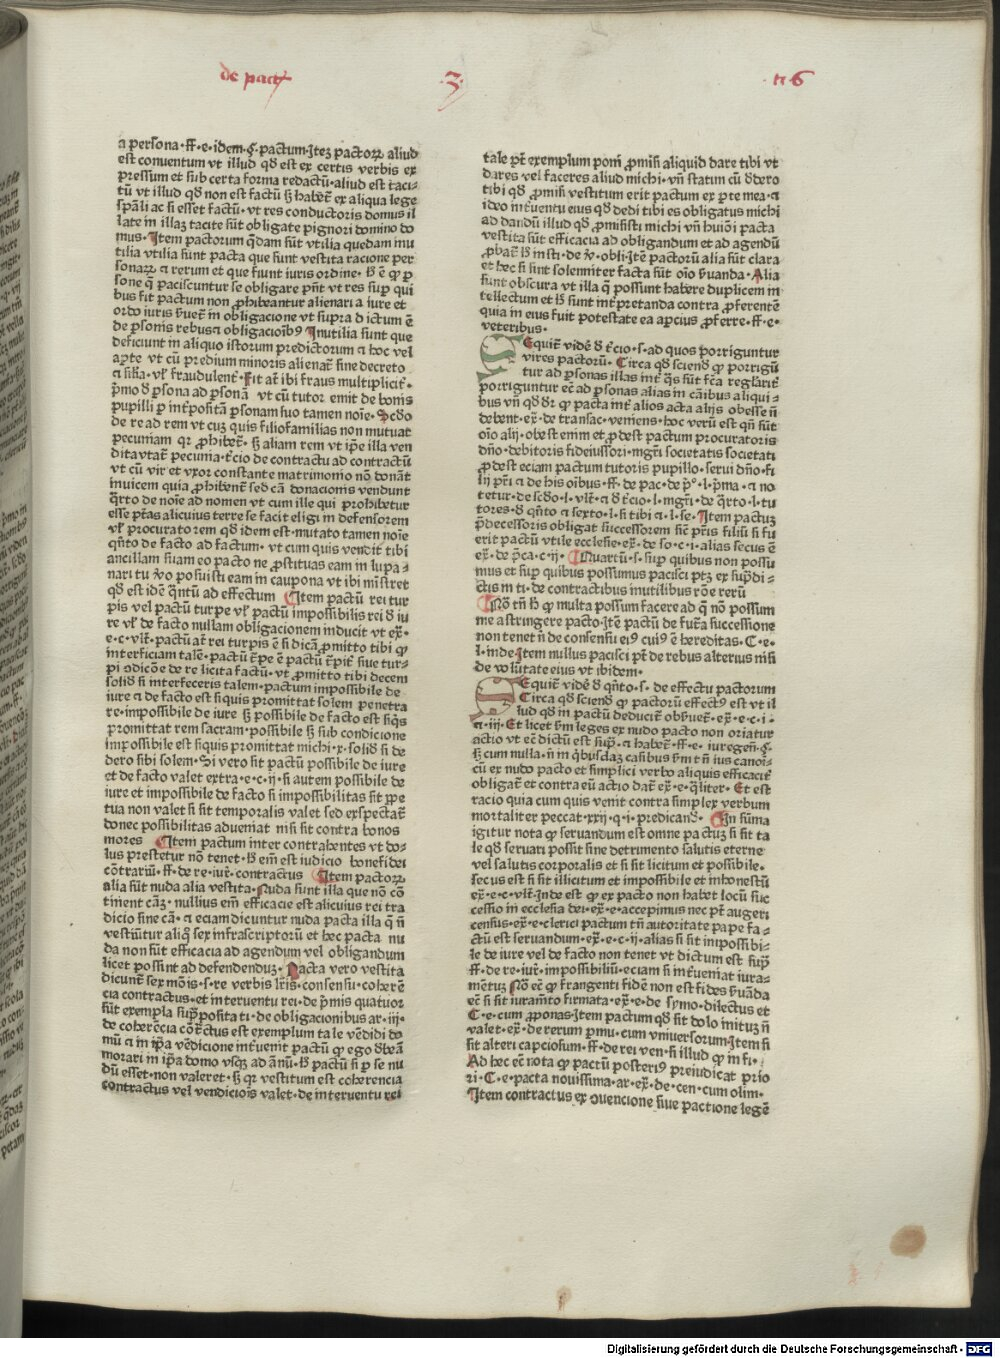 de pact̄
.3.
tt 6
a persona · ff · e · idem · §· pactum · Itez pactorꝝ aliud
est conuentum vt illud qd̄ est ex certis verbis ex
pressum et sub certa forma redactū · aliud est taci-
tū vt illud qd̄ non est factū ꝫ haber̄ ex aliqua lege
spāli ac si esset factū · vt res conductoris domus il
late in illaz tacite sūt obligate pignori domino do
mus · Item pactorum q̄dam sūt vtilia quedam inu
tilia vtilia sunt pacta que sunt vestita racione per
sonarꝝ a rerum et que fiunt iuris ordine · h̄ ē ꝙ ꝑ
sone q̄ paciscuntur se obligare pn̄t vt res suꝑ qui
bus fit pactum non ꝓhibeantur alienari a iure et
ordo iuris ẜuet̄ in obligacione vt supra dictum ē
de ꝑsonis rebus a obligacioībꝰ Inutilia sunt que
deficiunt in aliquo istorum predictorum a hoc vel
aꝑte vt cū predium minoris alienat̄ sine decreto
a silia · vl̓ fraudulent̓ · Fit at̄ ibi fraus multiplicit̓ ·
p̓mo d̄ ꝑsona ad ꝑsonā vt cū tutor emit de bonis
pupilli ꝑ int̓positā ꝑsonam suo tamen noīe · Scd̄o
de re ad rem vt cuꝫ quis filiofamilias non mutuat
pecuniam qr ꝓhibet̄ · ꝫ aliam rem vt ip̄e illa ven
dita vtat̄ pecunia · t̄cio de contractu ad contractū
vt cū vir et vxor constante matrimonio nō donāt
inuicem quia ꝓhibent̄ sed cā donacionis vendunt
q̄rto de noīe ad nomen vt cum ille qui prohibetur
esse ptās alicuius terre se facit eligi in defensorem
vl̓ procuratorem qd̄ idem est · mutato tamen noīe
qn̄to de facto ad factum · vt cum quis vendit tibi
ancillam suam eo pacto ne ꝓstituas eam in lupa-
nari tu v̓o posuisti eam in caupona vt ibi mīstret
qd̄ est idē q̄ntū ad effectum Item pactū rei tur
pis vel pactū turpe vl̓ pactū impossibilis rei d̄ iu
re vl̓ de facto nullam obligacionem inducit vt ex̄ ·
e · c · vlt̓ · pactū at̄ rei turpis ē si dicā ꝓmitto tibi ꝙ
interficiam talē · pactū t̄pe ē pactū t̄pit̓ siue tur-
pi ɔdicōe de relicta factū · vt ꝓmitto tibi decem
solid̓ si interfeceris talem · pactum impossibile de
iure a de facto est si quis promittat solem penetra
re · impossibile de iure ꝫ possibile de facto est siq̄s
promittat rem sacram · possibile ꝫ sub condicione
impossibile est siquis promittat michi · x · solid̓ si de
dero sibi solem · Si vero sit pactū possibile de iure
et de facto valet extra · e · c · ij · si autem possibile de
iure et impossibile de facto si impossibilitas sit ꝑpe
tua non valet si sit temporalis valet sed exspectat̄
donec possibilitas adueniat nisi sit contra bonos
mores Item pactum inter contrahentes vt do-
lus prestetur nō tenet · h̄ em̄ est iudicio bonefidei
cōtrariū · ff · de re · iur̓ · contractus Item pactorꝝ
alia sūt nuda alia vestita · Nuda sunt illa que nō cō
tinent cāꝫ · nullius em̄ efficacie est alicuius rei tra
dicio sine cā · a eciam dicuntur nuda pacta illa q̄ ñ
vestiūtur aliq̄ sex infrascriptorū et hec pacta nu
da non sūt efficacia ad agendum vel obligandum
licet possint ad defendenduꝫ · Pacta vero vestita
dicunt̄ sex mōis · s · re verbis lr̄is · consensu · coherē
cia contractus · et interuentu rei · de p̄mis quatuor
sūt exempla suꝑposita ti · de obligacionibus ar · iij ·
de coherēcia cōtr̄ctus est exemplum tale vēdidi do
mū a in ip̄a vēdicione int̓uenit pactū ꝙ ego d̄beā
morari in ip̄a domo vsqꝫ ad ānū · h̄ pactū si ꝑ se nu
dū esset · non valeret · ꝫ qr vestitum est coherencia
contractus vel vendiciōis valet · de interuentu rei
tale pt̄ exemplum poni ꝓmisi aliquid dare tibi vt
dares vel faceres aliud michi · vn̄ statim cū d̄dero
tibi qd̄ ꝓmisi vestitum erit pactum ex ꝑte mea · a
ideo int̓uentu eius qd̄ dedi tibi es obligatus michi
ad dandū illud qd̄ ꝓmisisti michi vn̄ hui9ōi pacta
vestita sūt efficacia ad obligandum et ad agendū
ꝓbat̄ h̄ insti · de v̓ · obli · Itē pactorū alia sūt clara
et hec si sint solemniter facta sūt oīo ẜuanda · Alia
sunt obscura vt illa q̄ possunt habere duplicem in
tellectum et h̄ sunt int̓pretanda contra ꝓferentē
quia in eius fuit potestate ea aꝑcius ꝓferre · ff · e ·
veteribus ·
Sequit̄ vidē d̄ t̄cio · s · ad quos porriguntur
vires pactorū · Circa qd̄ sciend̓ ꝙ porrigū
tur ad ꝑsonas illas int̓ q̄s sūt fc̄a regularit̓
porriguntur ec̄ ad ꝑsonas alias in cāibus aliqui-
bus vn̄ qd̄ dr̄ ꝙ pacta int̓ alios acta alijs obesse ñ
debent · ex̄ · de transac · veniens · hoc verū est qn̄ sūt
oīo alij · obest enim et ꝓdest pactum procuratoris
dn̄o · debitoris fideiussori · mgr̄i societatis societati
ꝓdest eciam pactum tutoris pupillo · serui dn̄o · fi
lij pr̄i a de his oībus · ff · de pac · de p̓º · l · p̓ma · a no
tetur · de scd̄o · l · vlt̓ · a d̄ t̄cio · l · mgr̄i · de q̄rto · l · tu
tores · d̄ qn̄to a sexto · l · si tibi a · l · se · Item pactuꝫ
p̄decessoris obligat successorem sic̄ pr̄is filiū si fu
erit pactū vtile ecclesie · ex̄ · de so · c · i · alias secus ē
ex̄ · de p̄ca · c · ij · Quartū · s · suꝑ quibus non possu
mus et suꝑ quibus possumus pacisci ptꝫ ex sup̓di-
ctis in ti · de contractibus inutilibus rōe rerū
Nō tn̄ h̄ ꝙ multa possum facere ad q̄ nō possum
me astringere pacto · Itē pactū de fut̓a successione
non tenet n̄ de consensu eiꝰ cuiꝰ ē hereditas · C · e ·
l · inde · Item nullus pacisci pt̄ de rebus alterius nisi
de volūtate eius vt ibidem ·
Sequit̄ vidē d̄ qn̄to · s · de effectu pactorum
Circa qd̄ sciend̓ ꝙ pactorū effectꝰ est vt il
lud qd̄ in pactū deducit̄ obẜuet̄ · ex̄ · e · c · i ·
a · iij · Et licet ẜm leges ex nudo pacto non oriatur
actio vt ec̄ dictū est suꝑ · a habet̄ · ff · e · iuregen̄ · §·
ꝫ cum nulla · ñ in q̄busdaꝫ casibus ẜm tñ ius canoī-
cū ex nudo pacto et simplici verbo aliquis efficacit̓
obligat̄ et contra eū actio dat̄ ex̄ · e · q̄liter · Et est
racio quia cum quis venit contra simplex verbum
mortaliter peccat · xxij · q · i · predicand̓ · In sūma
igitur nota ꝙ seruandum est omne pactuꝫ si sit ta
le qd̄ seruari possit sine detrimento salutis eterne
vel salutis corporalis et si sit licitum et possibile ·
secus est si sit illicitum et impossibile et inhonestū
ex̄ · e · c · vlt̓ · Inde est ꝙ ex pacto non habet locū suc
cessio in ecclesia dei · ex̄ · e · accepimus nec pt̄ augeri
census · ex̄ · e · clerici pactum tn̄ autoritate pape fa-
ctū est seruandum · ex̄ · e · c · ij · alias si sit impossibi-
le de iure vel de facto non tenet vt dictum est suꝑ
ff · de re · iur̓ · impossibiliū · eciam si int̓ueniat iura-
mētuꝫ Nō ec̄ ꝙ frangenti fidē non est fides ẜuāda
ec̄ si sit iuram̄to firmata · ex̄ · e · de symo · dilectus et
C · e · cum ꝓponas · Item pactum qd̄ sit dolo initum ñ
valet · ex̄ · de rerum ꝑmu · cum vniuersorum · Item si
sit alteri capciosum · ff · de rei ven · si illud ꝙ in fi ·
Ad hec ec̄ nota ꝙ pactū posteriꝰ preiudicat prio
ri · C · e · pacta nouissima · ar · ex̄ · de · cen · cum olim ·
Item contractus ex ɔuencione siue pactione legē
Digitalisierung gefördert durch die Deutsche Forschungsgemeinschaft - DFG